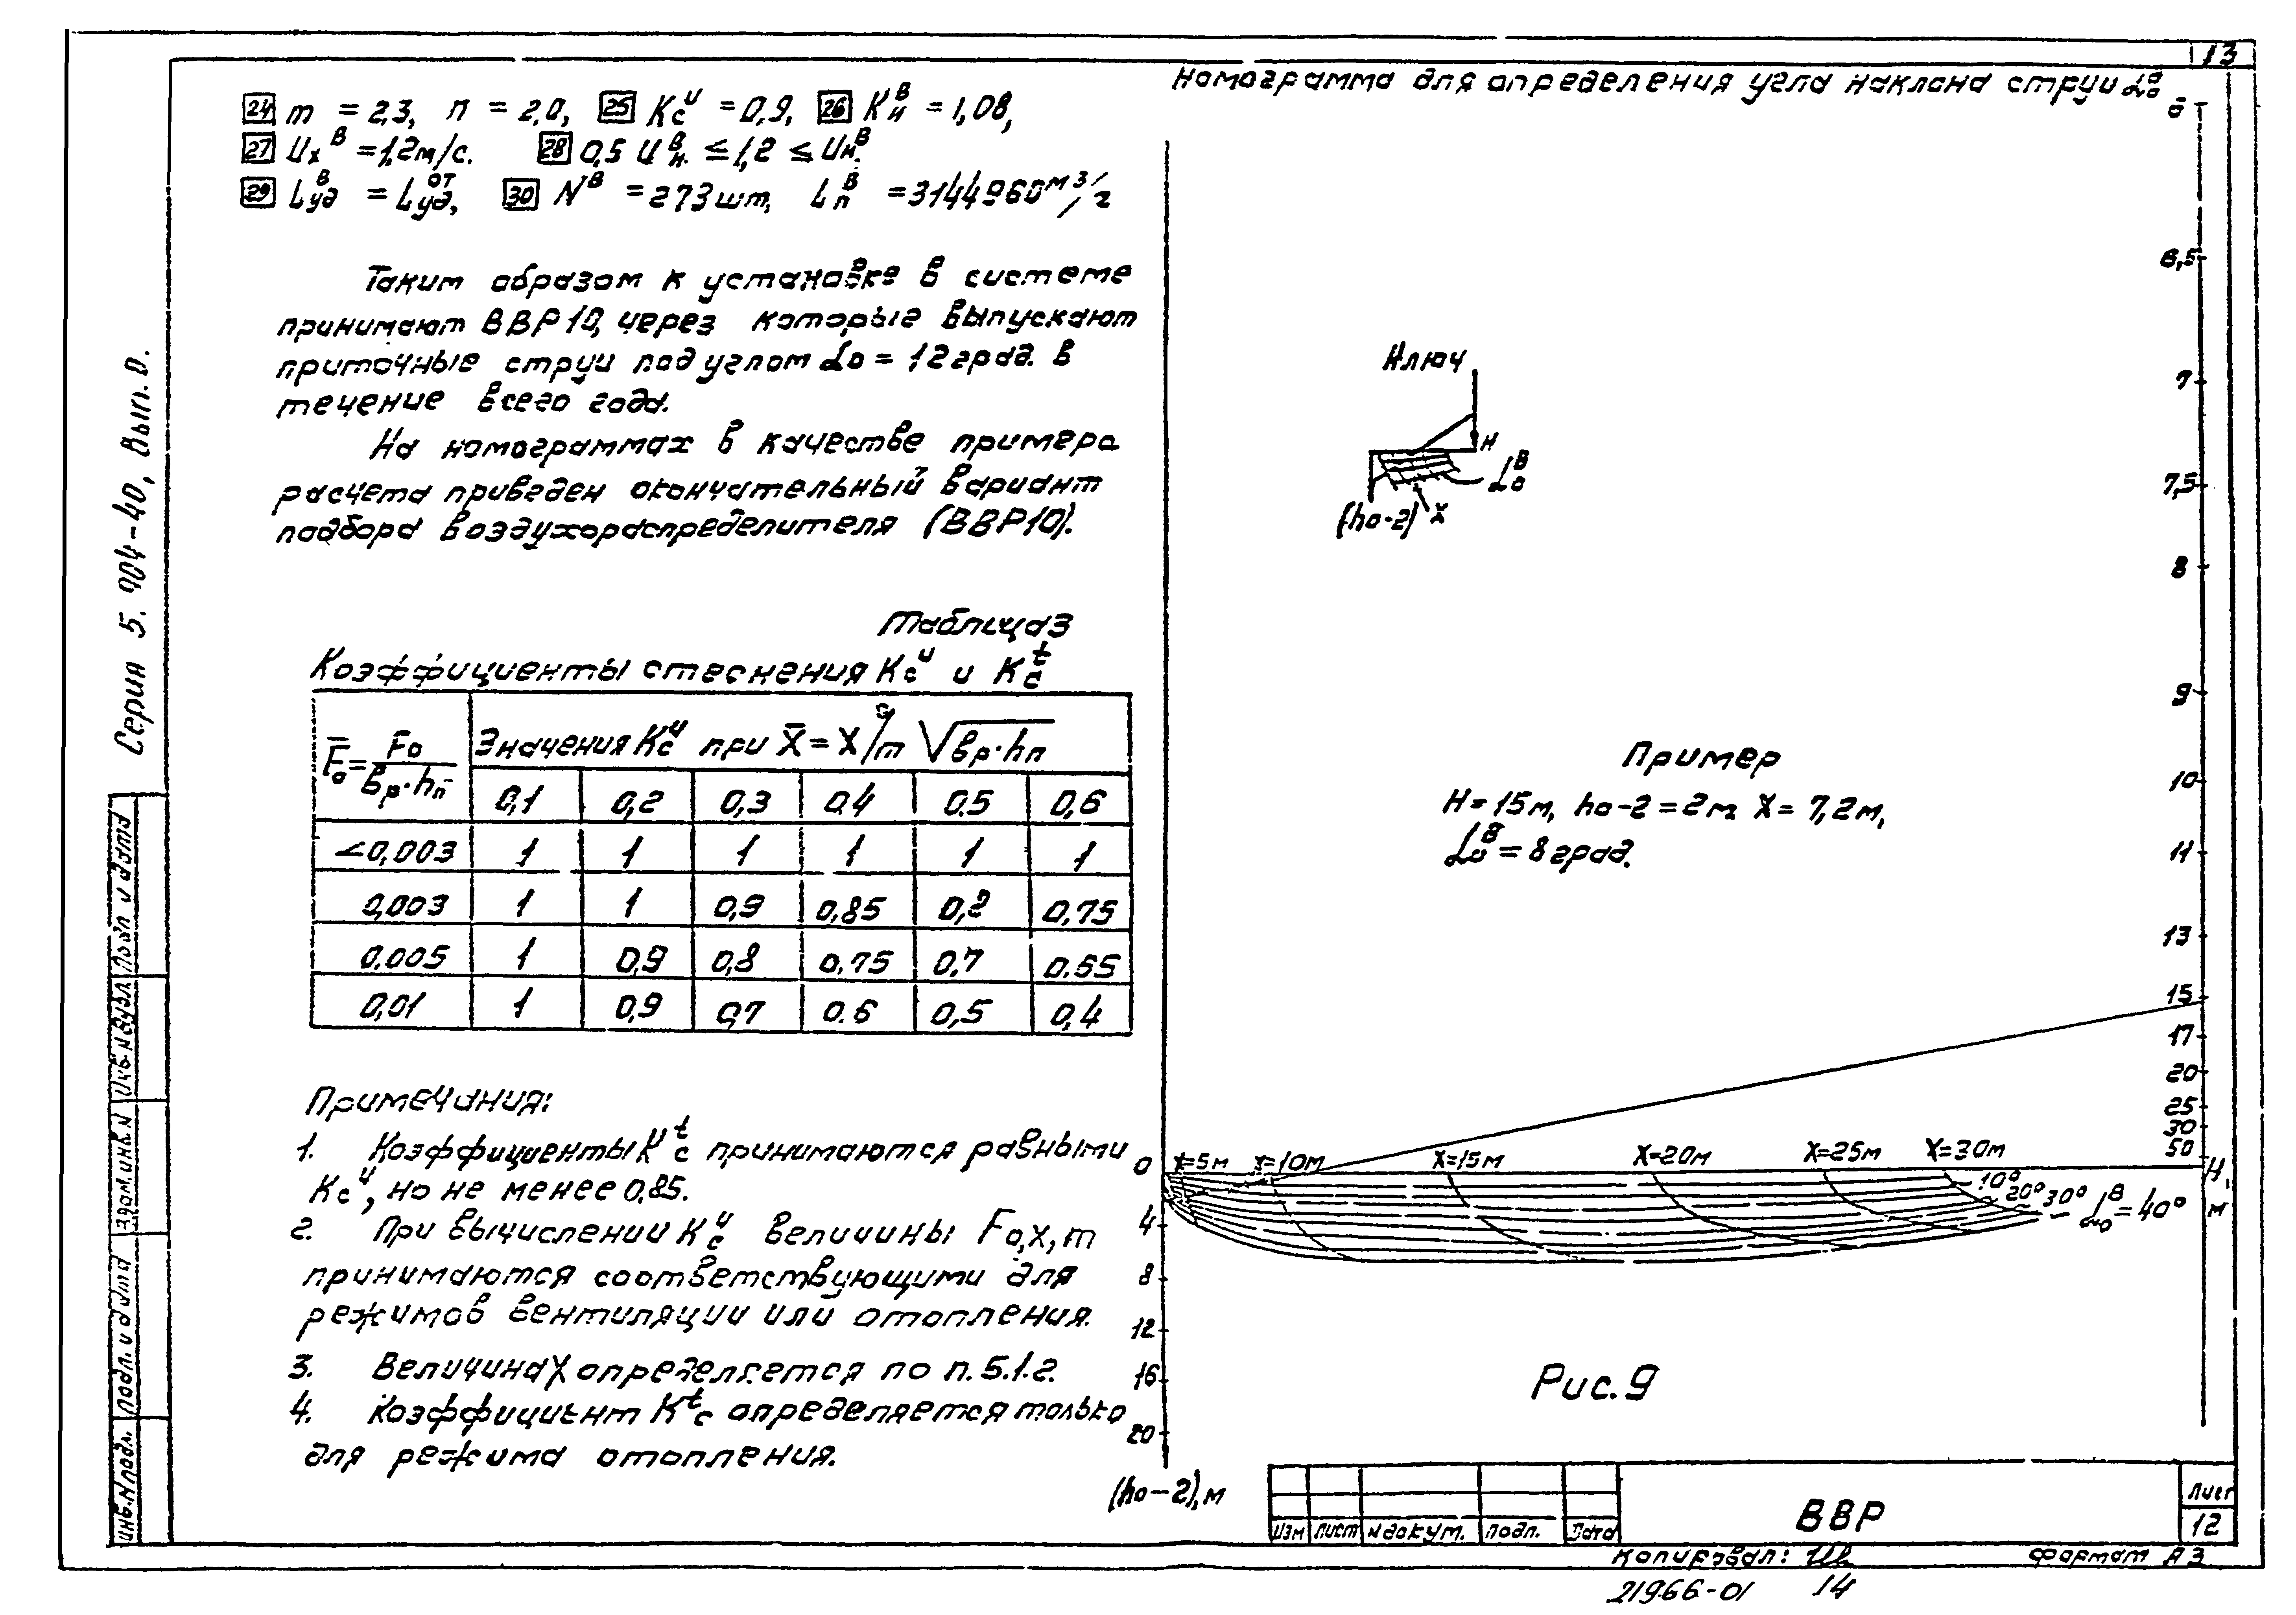 13
24 m = 2,3, n = 2,0, 25 Kcᵘ = 0,9, 26 Kиᴮ = 1,08,
27 Uxᴮ = 1,2 м/с. 28 0,5 Uн.ᴮ ≤ 1,2 ≤ Uн.ᴮ
29 Lудᴮ = Lудᵒᵀ, 30 Nᴮ = 273 шт, Lпᴮ = 3144960 м³/г
Таким образом к установке в системе
принимают ВВР10, через которые выпускают
приточные струи под углом αо = 12 град. в
течение всего года.
На номограммах в качестве примера
расчета приведен окончательный вариант
подбора воздухораспределителя (ВВР10).
Таблица 3
Коэффициенты стеснения Kcᵘ и Kcᵗ
F̄о = Fо / вр·hп
Значения Kcᵘ при X̄ = X/m √вр·hп
0,1 0,2 0,3 0,4 0.5 0,6
<0,003 1 1 1 1 1 1
0,003 1 1 0,9 0,85 0,2 0,75
0.005 1 0,9 0,8 0,75 0,7 0.65
0,01 1 0,9 0,7 0.6 0,5 0,4
Примечания:
1. Коэффициенты Kcᵗ принимаются равными
Kcᵘ, но не менее 0,85.
2. При вычислении Kcᵘ величины Fо,X,m
принимаются соответствующими для
режимов вентиляции или отопления.
3. Величина X определяется по п. 5.1.г.
4. Коэффициент Kᵗc определяется только
для режима отопления.
Номограмма для определения угла наклона струи αоᴮ
6
6,5
7
7,5
8
9
10
11
13
15
17
20
25
30
50
H,
м
Ключ
H
αоᴮ
(hо-2) X
Пример
H = 15 м, hо-2 = 2 м X = 7,2 м,
αоᴮ = 8 град.
0
4
8
12
16
20
(hо-2), м
X=5м X=10м X=15м X=20м X=25м X=30м
10° 20° 30° αоᴮ = 40°
Рис. 9
Изм Лист N докум. Подп. Дата
ВВР
Лист
12
Копировал:
Формат А3
21966-01 14
Серия 5.904-40, Вып. 0.
Инв. N подл. Подп. и дата Взам. инв. N Инв. N дубл. Подп. и дата